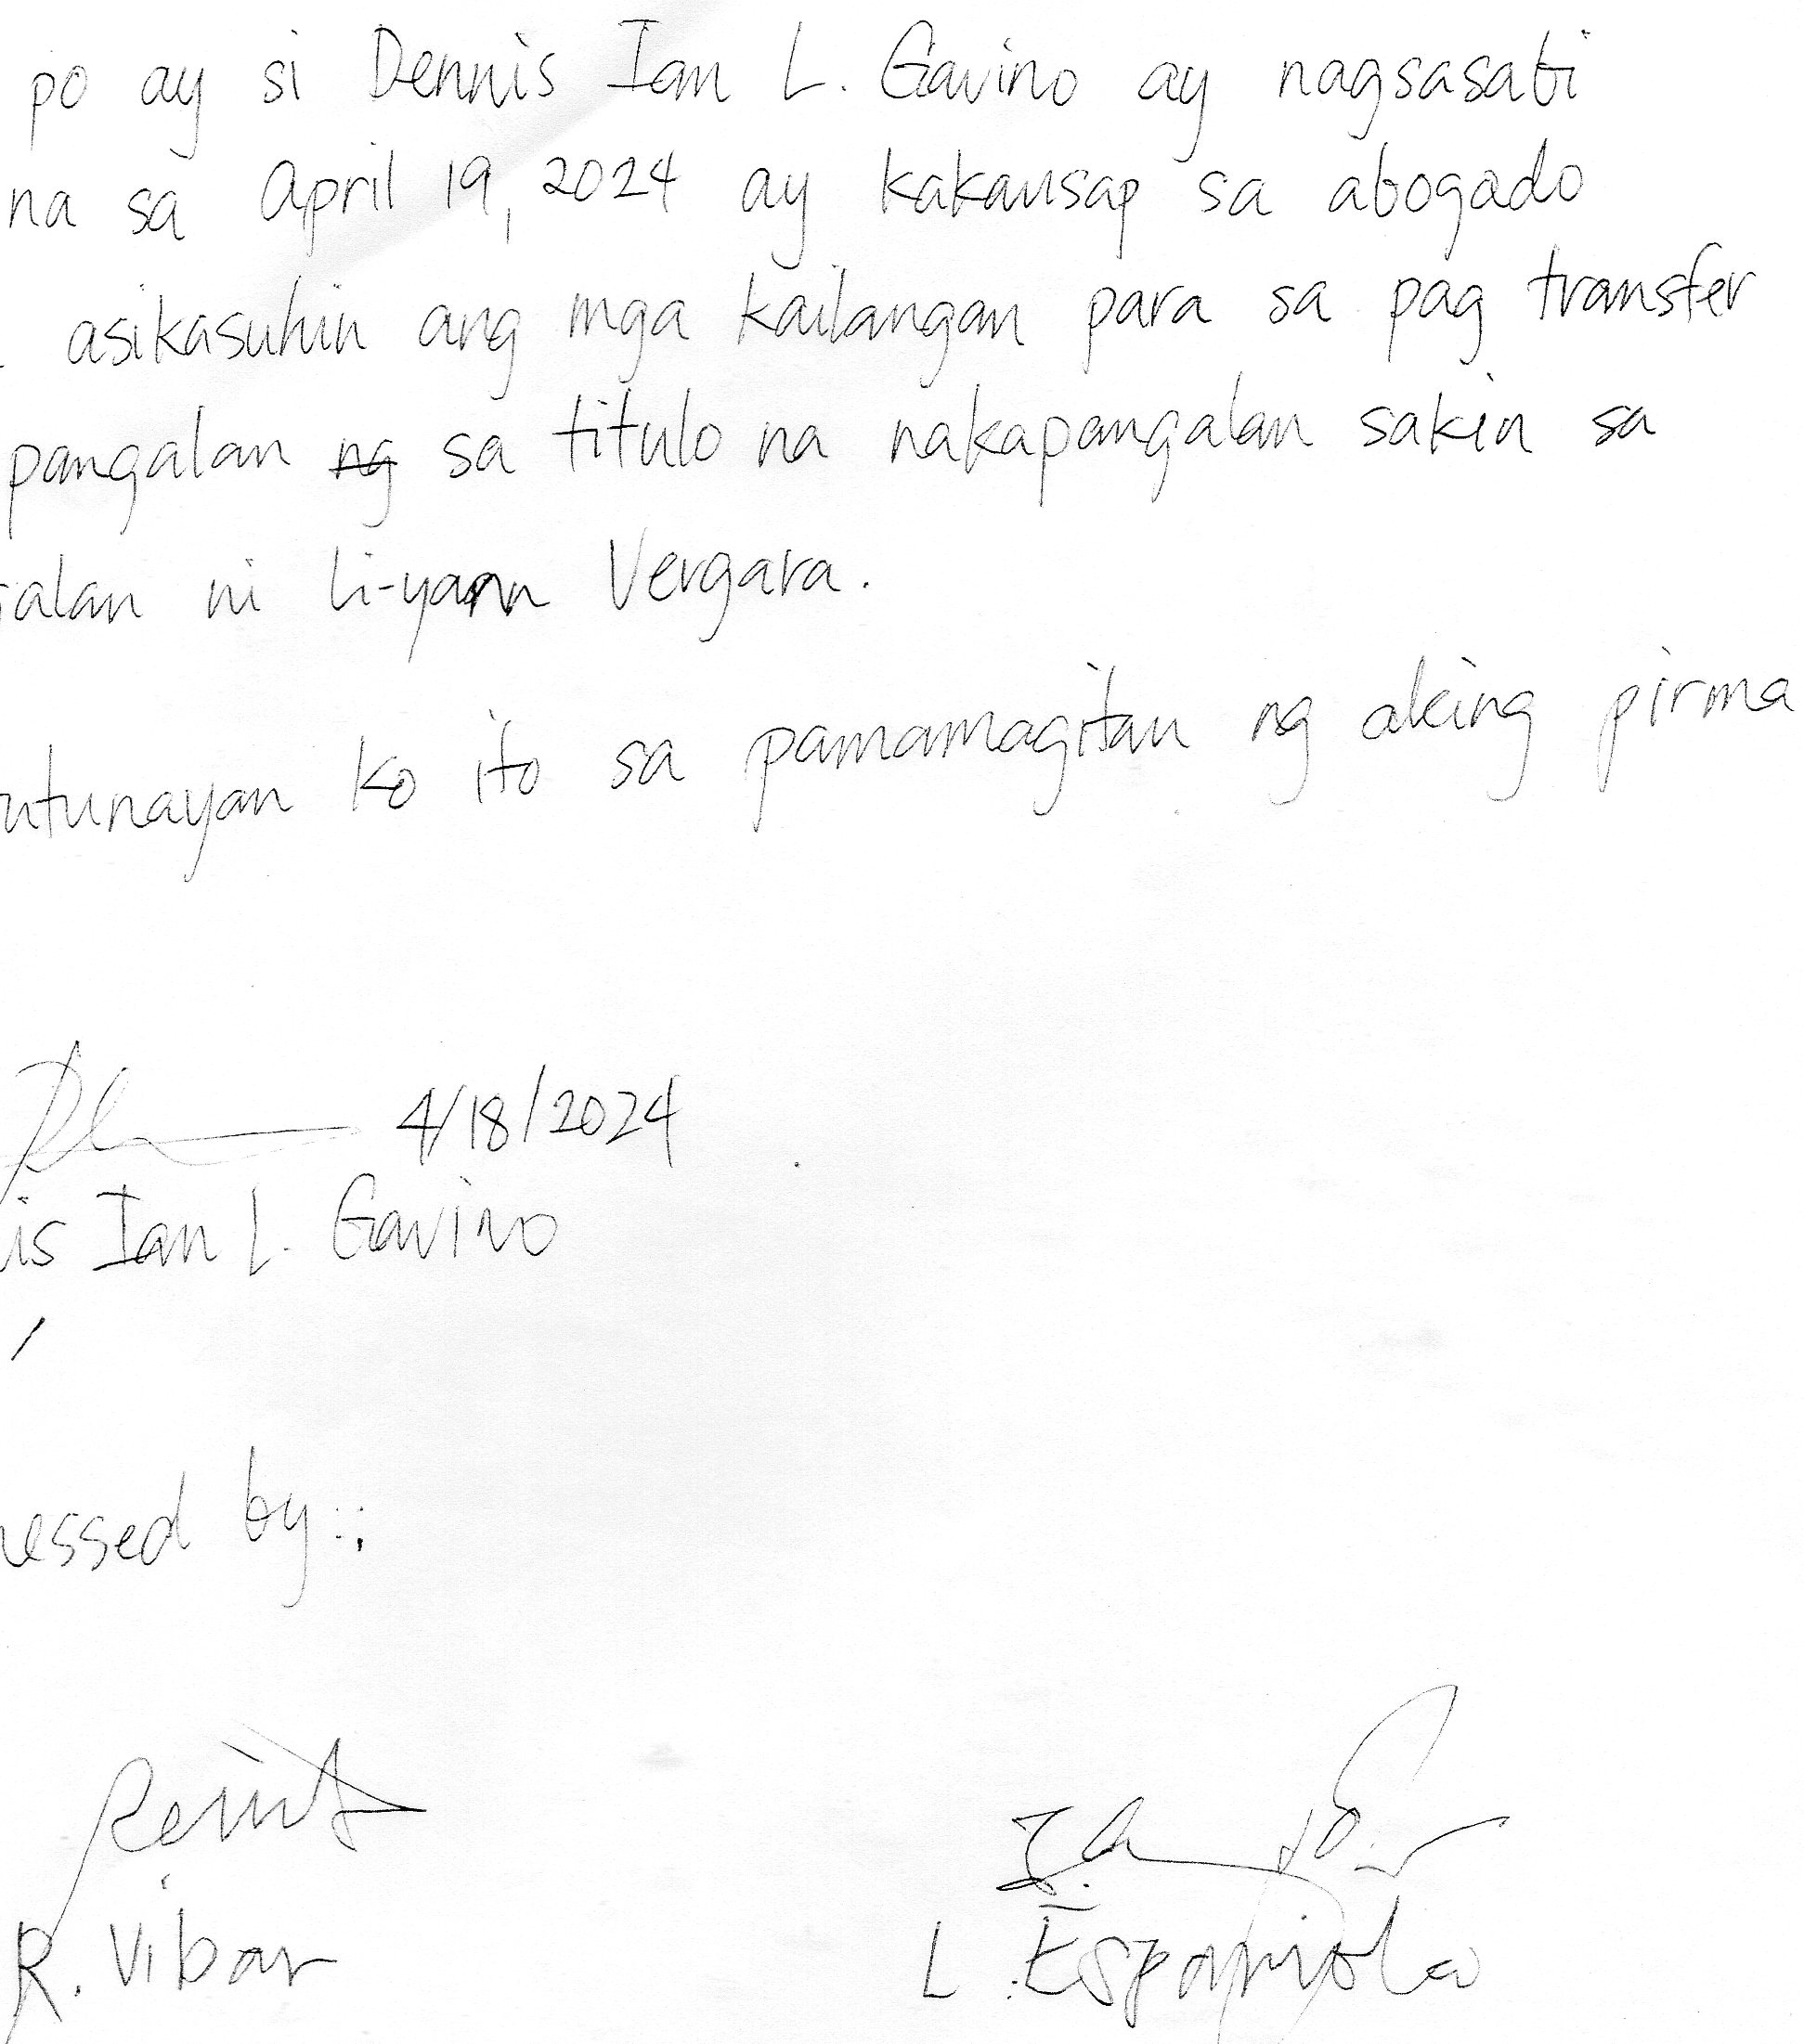 po ay si Dennis Ian L. Gavino ay nagsasabi
na sa April 19, 2024 ay kakausap sa abogado
asikasuhin ang mga kailangan para sa pag transfer
pangalan ng sa titulo na nakapangalan sakin sa
alan ni Li-yann Vergara.
utunayan ko ito sa pamamagitan ng aking pirma
4/18/2024
is Ian L. Gavino
nessed by:
R. Vibar
L Espanola